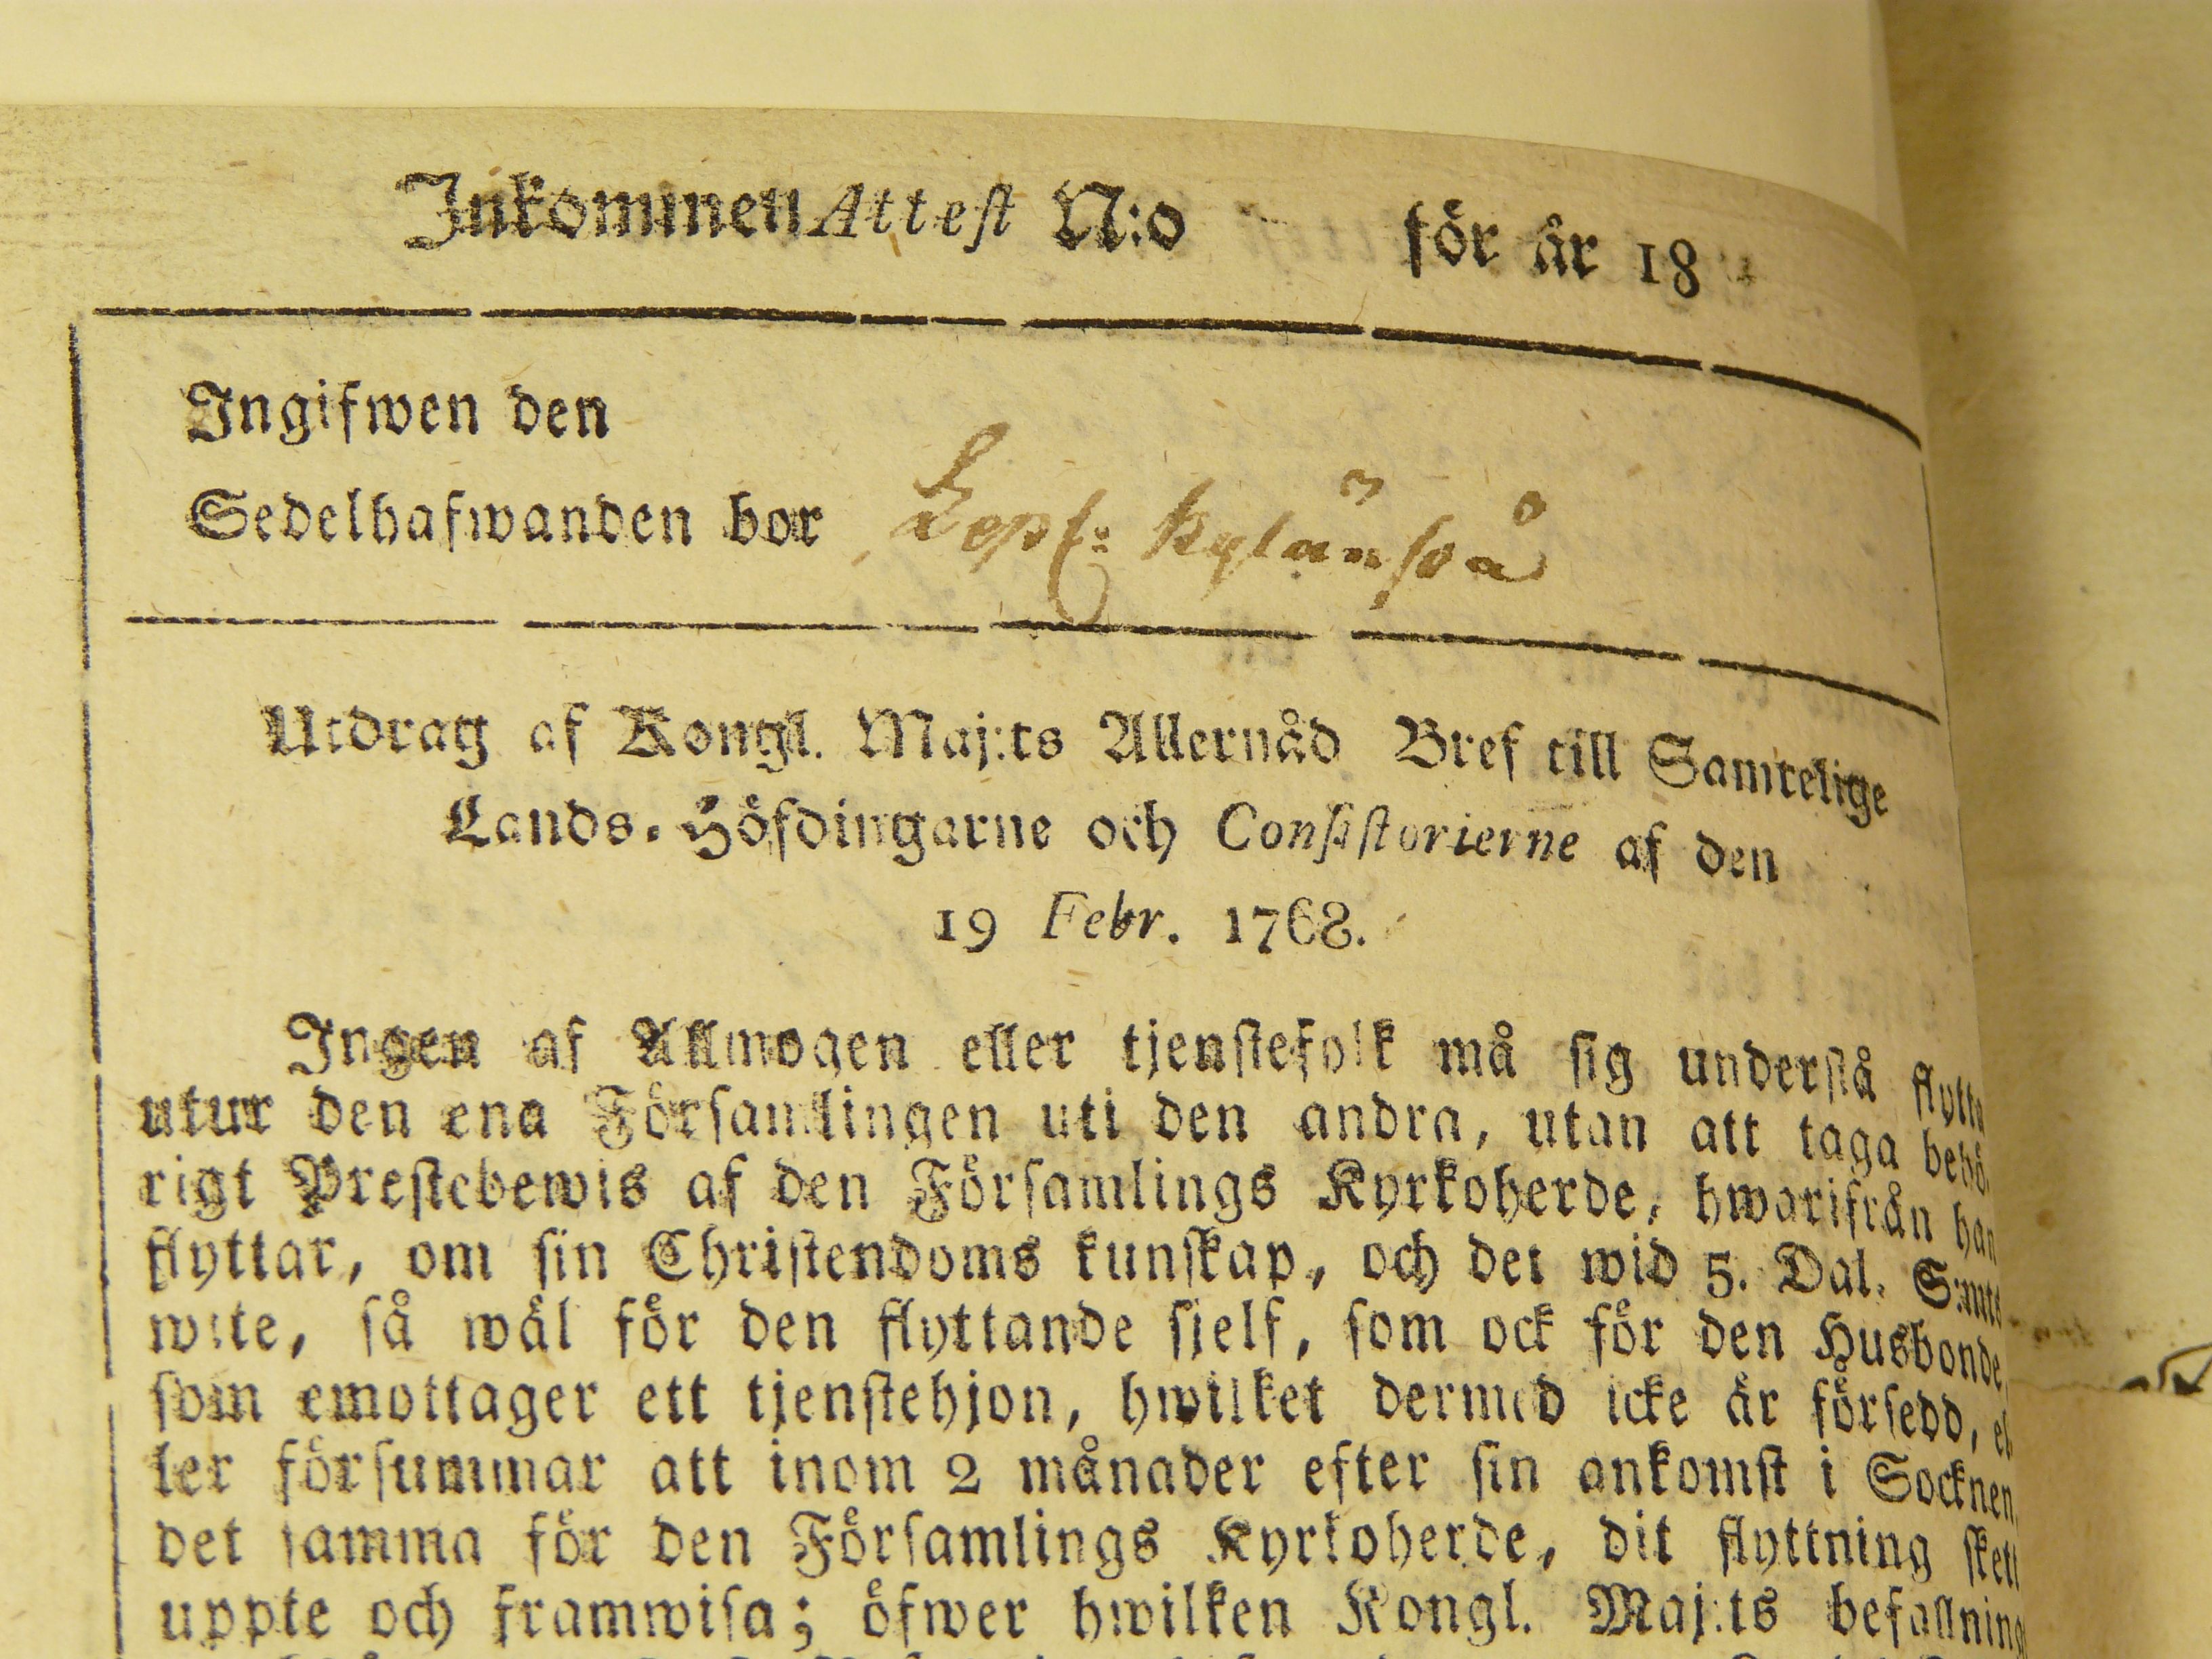 Inkommen Attest N:o för år 18
Ingifwen den
Sedelhafwanden bor
Utdrag af Kongl. Maj:ts Allernåd Bref till Samtelige
Lands-Höfdingarne och Consistorierne af den
19 Febr. 1768.
Ingen af Allmogen eller tjenstefolk må sig understå flytta
utur den ena Församlingen uti den andra, utan att taga behö-
rigt Prestebewis af den Församlings Kyrkoherde, hwarifrån han
flyttar, om sin Christendoms kunskap, och det wid 5. Dal. S:mts
wite, så wäl för den flyttande sjelf, som ock för den Husbonde,
som emottager ett tjenstehjon, hwilket dermed icke är försedd, el-
ler försummar att inom 2 månader efter sin ankomst i Socknen,
det samma för den Församlings Kyrkoherde, dit flyttning skett
uppte och framwisa; öfwer hwilken Kongl. Maj:ts befallning